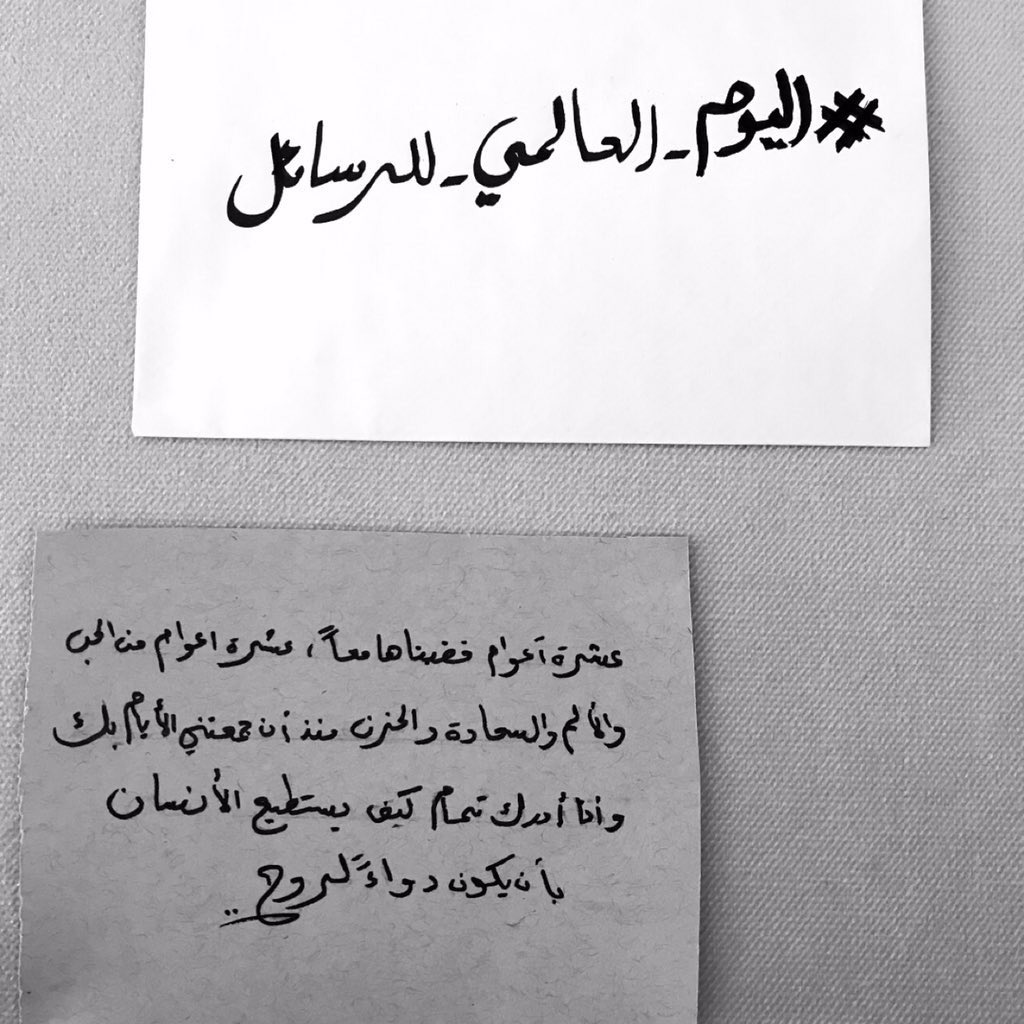 #اليوم_العالمي_للرسائل
عشرة أعوام قضيناها معاً، عشرة اعوام من الحب
والألم والسعادة والحزن منذ أن جمعتني الأيام بك
وأنا أدرك تمام كيف يستطيع الأنسان
بأن يكون دواءً لروح..